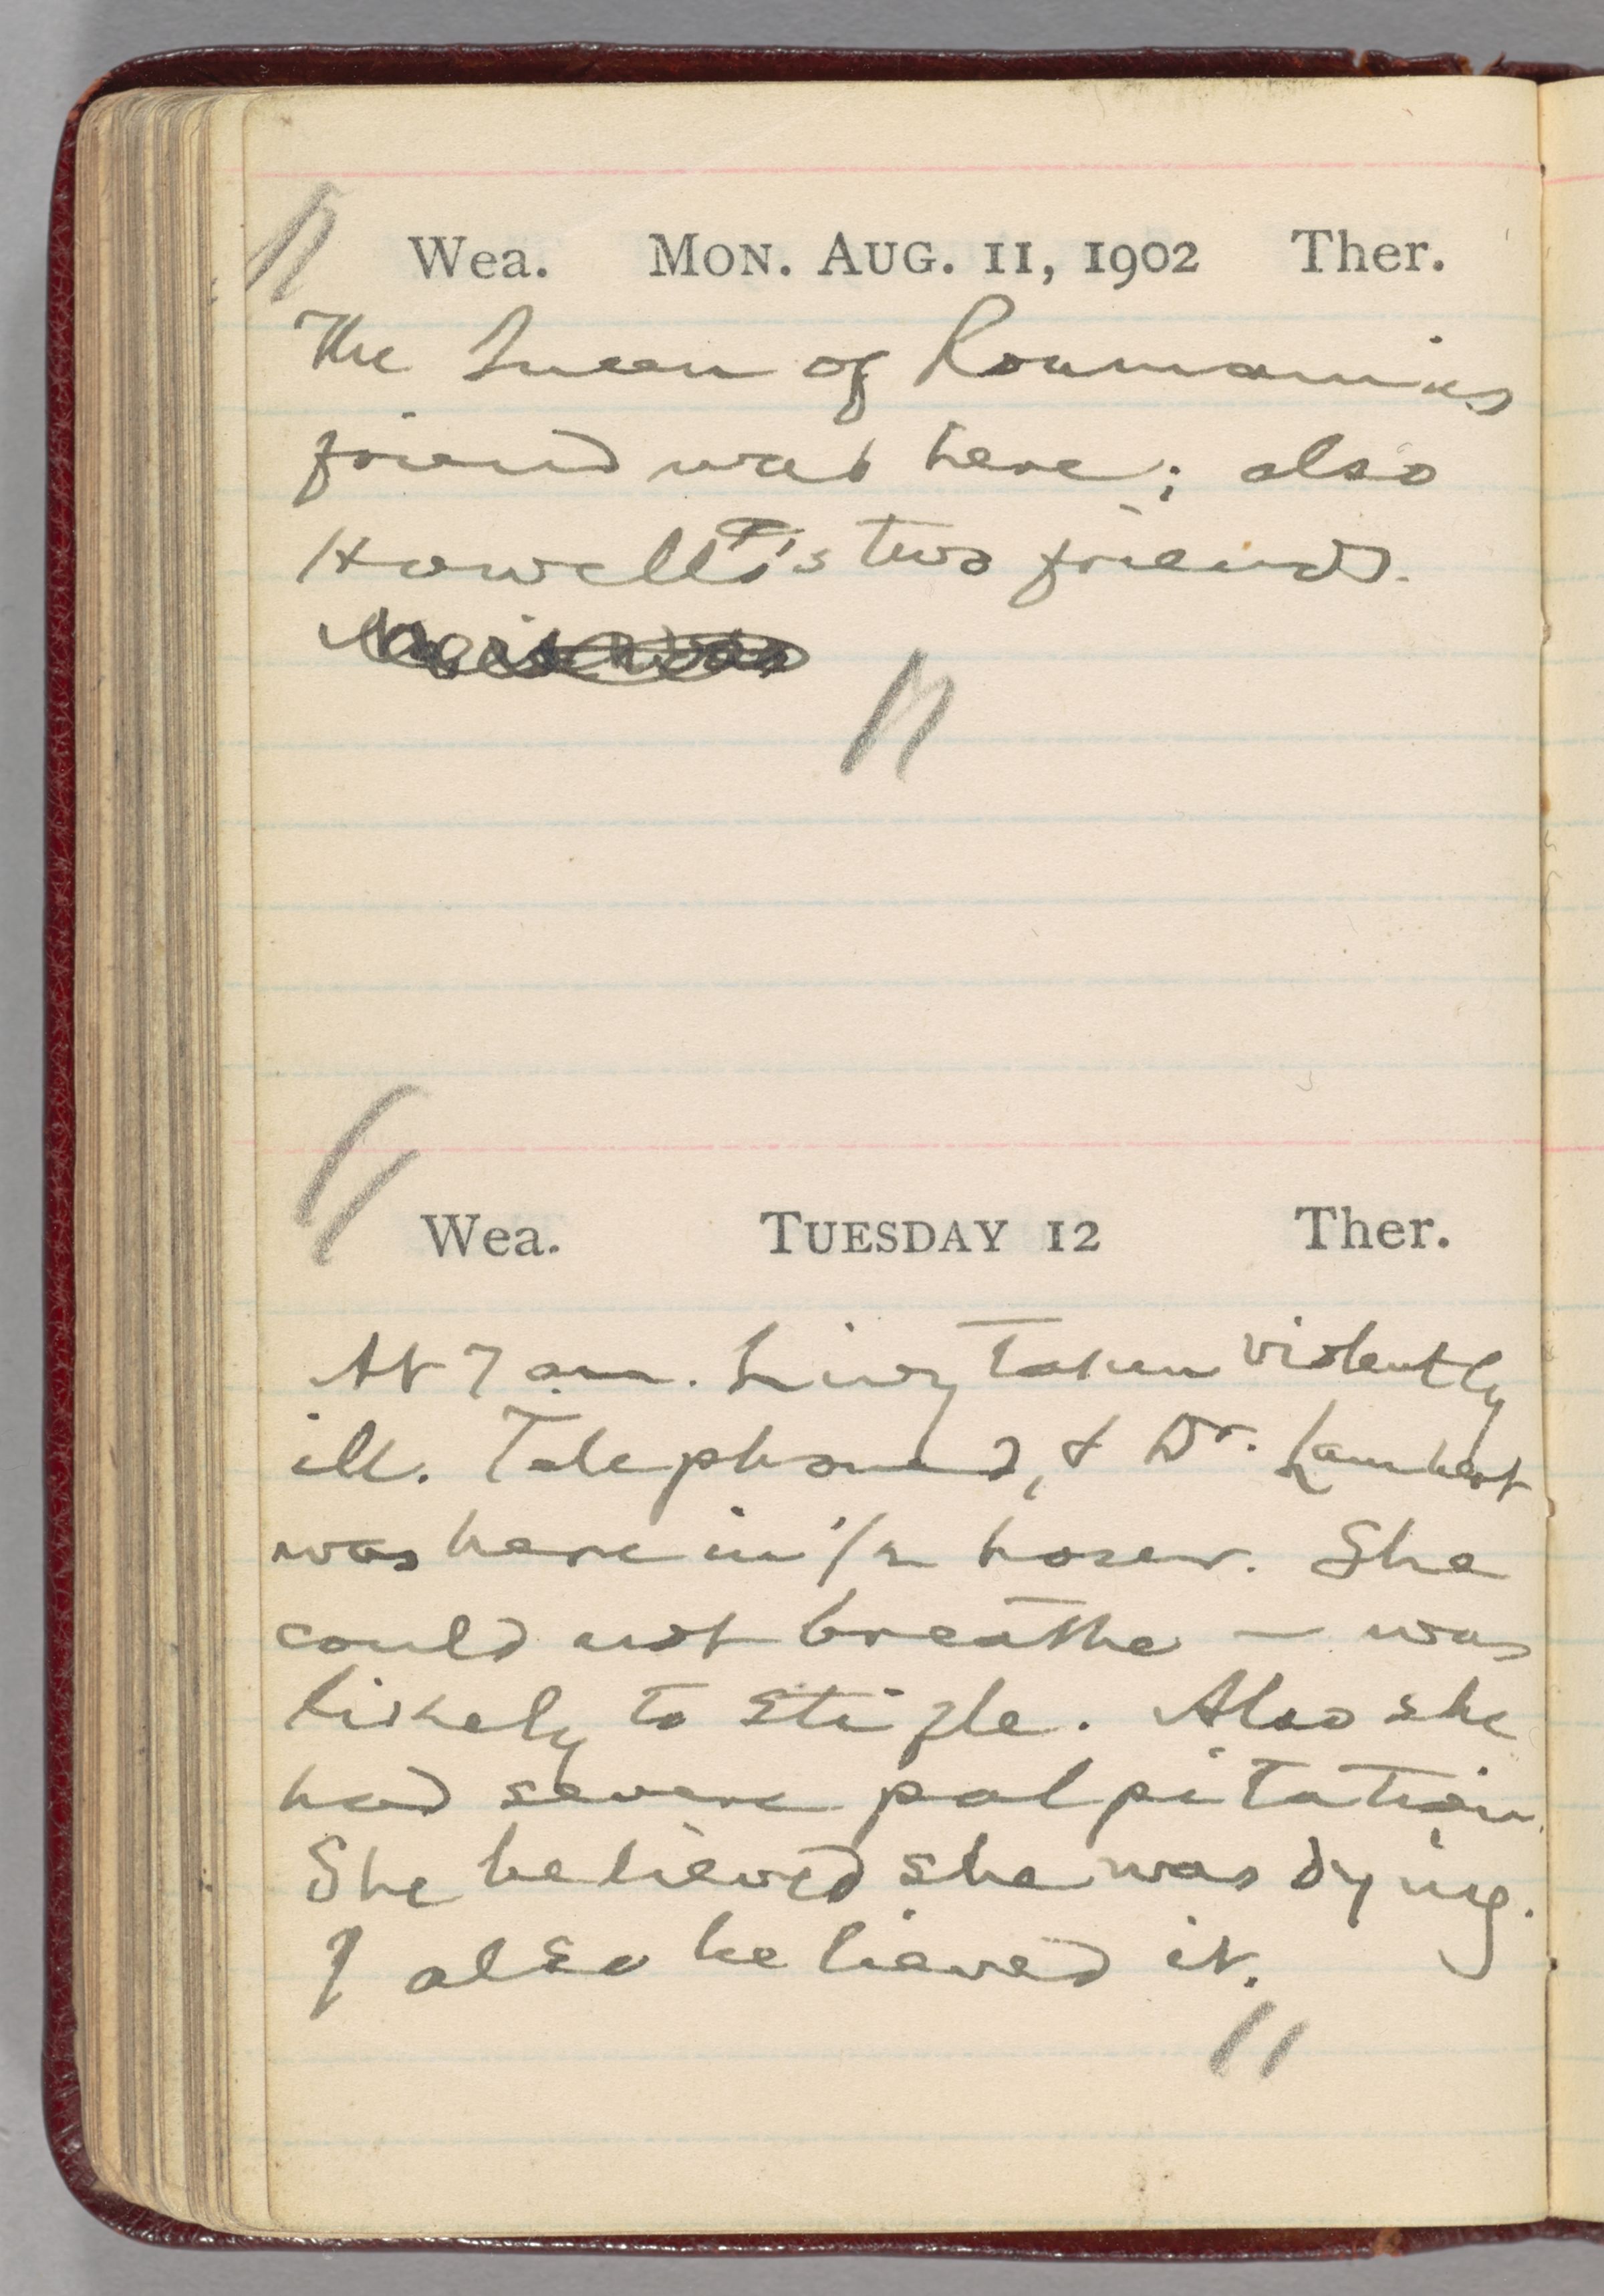 Wea. MON. AUG. 11, 1902 Ther.
The Queen of Roumania's
friend was here; also
Howells's two friends.
Wea. TUESDAY 12 Ther.
At 7 am. Livy taken violently
ill. Telephoned, & Dr. Lambert
was here in 1/2 hour. She
could not breathe — was
likely to stifle. Also she
had severe palpitation.
She believed she was dying.
I also believed it.